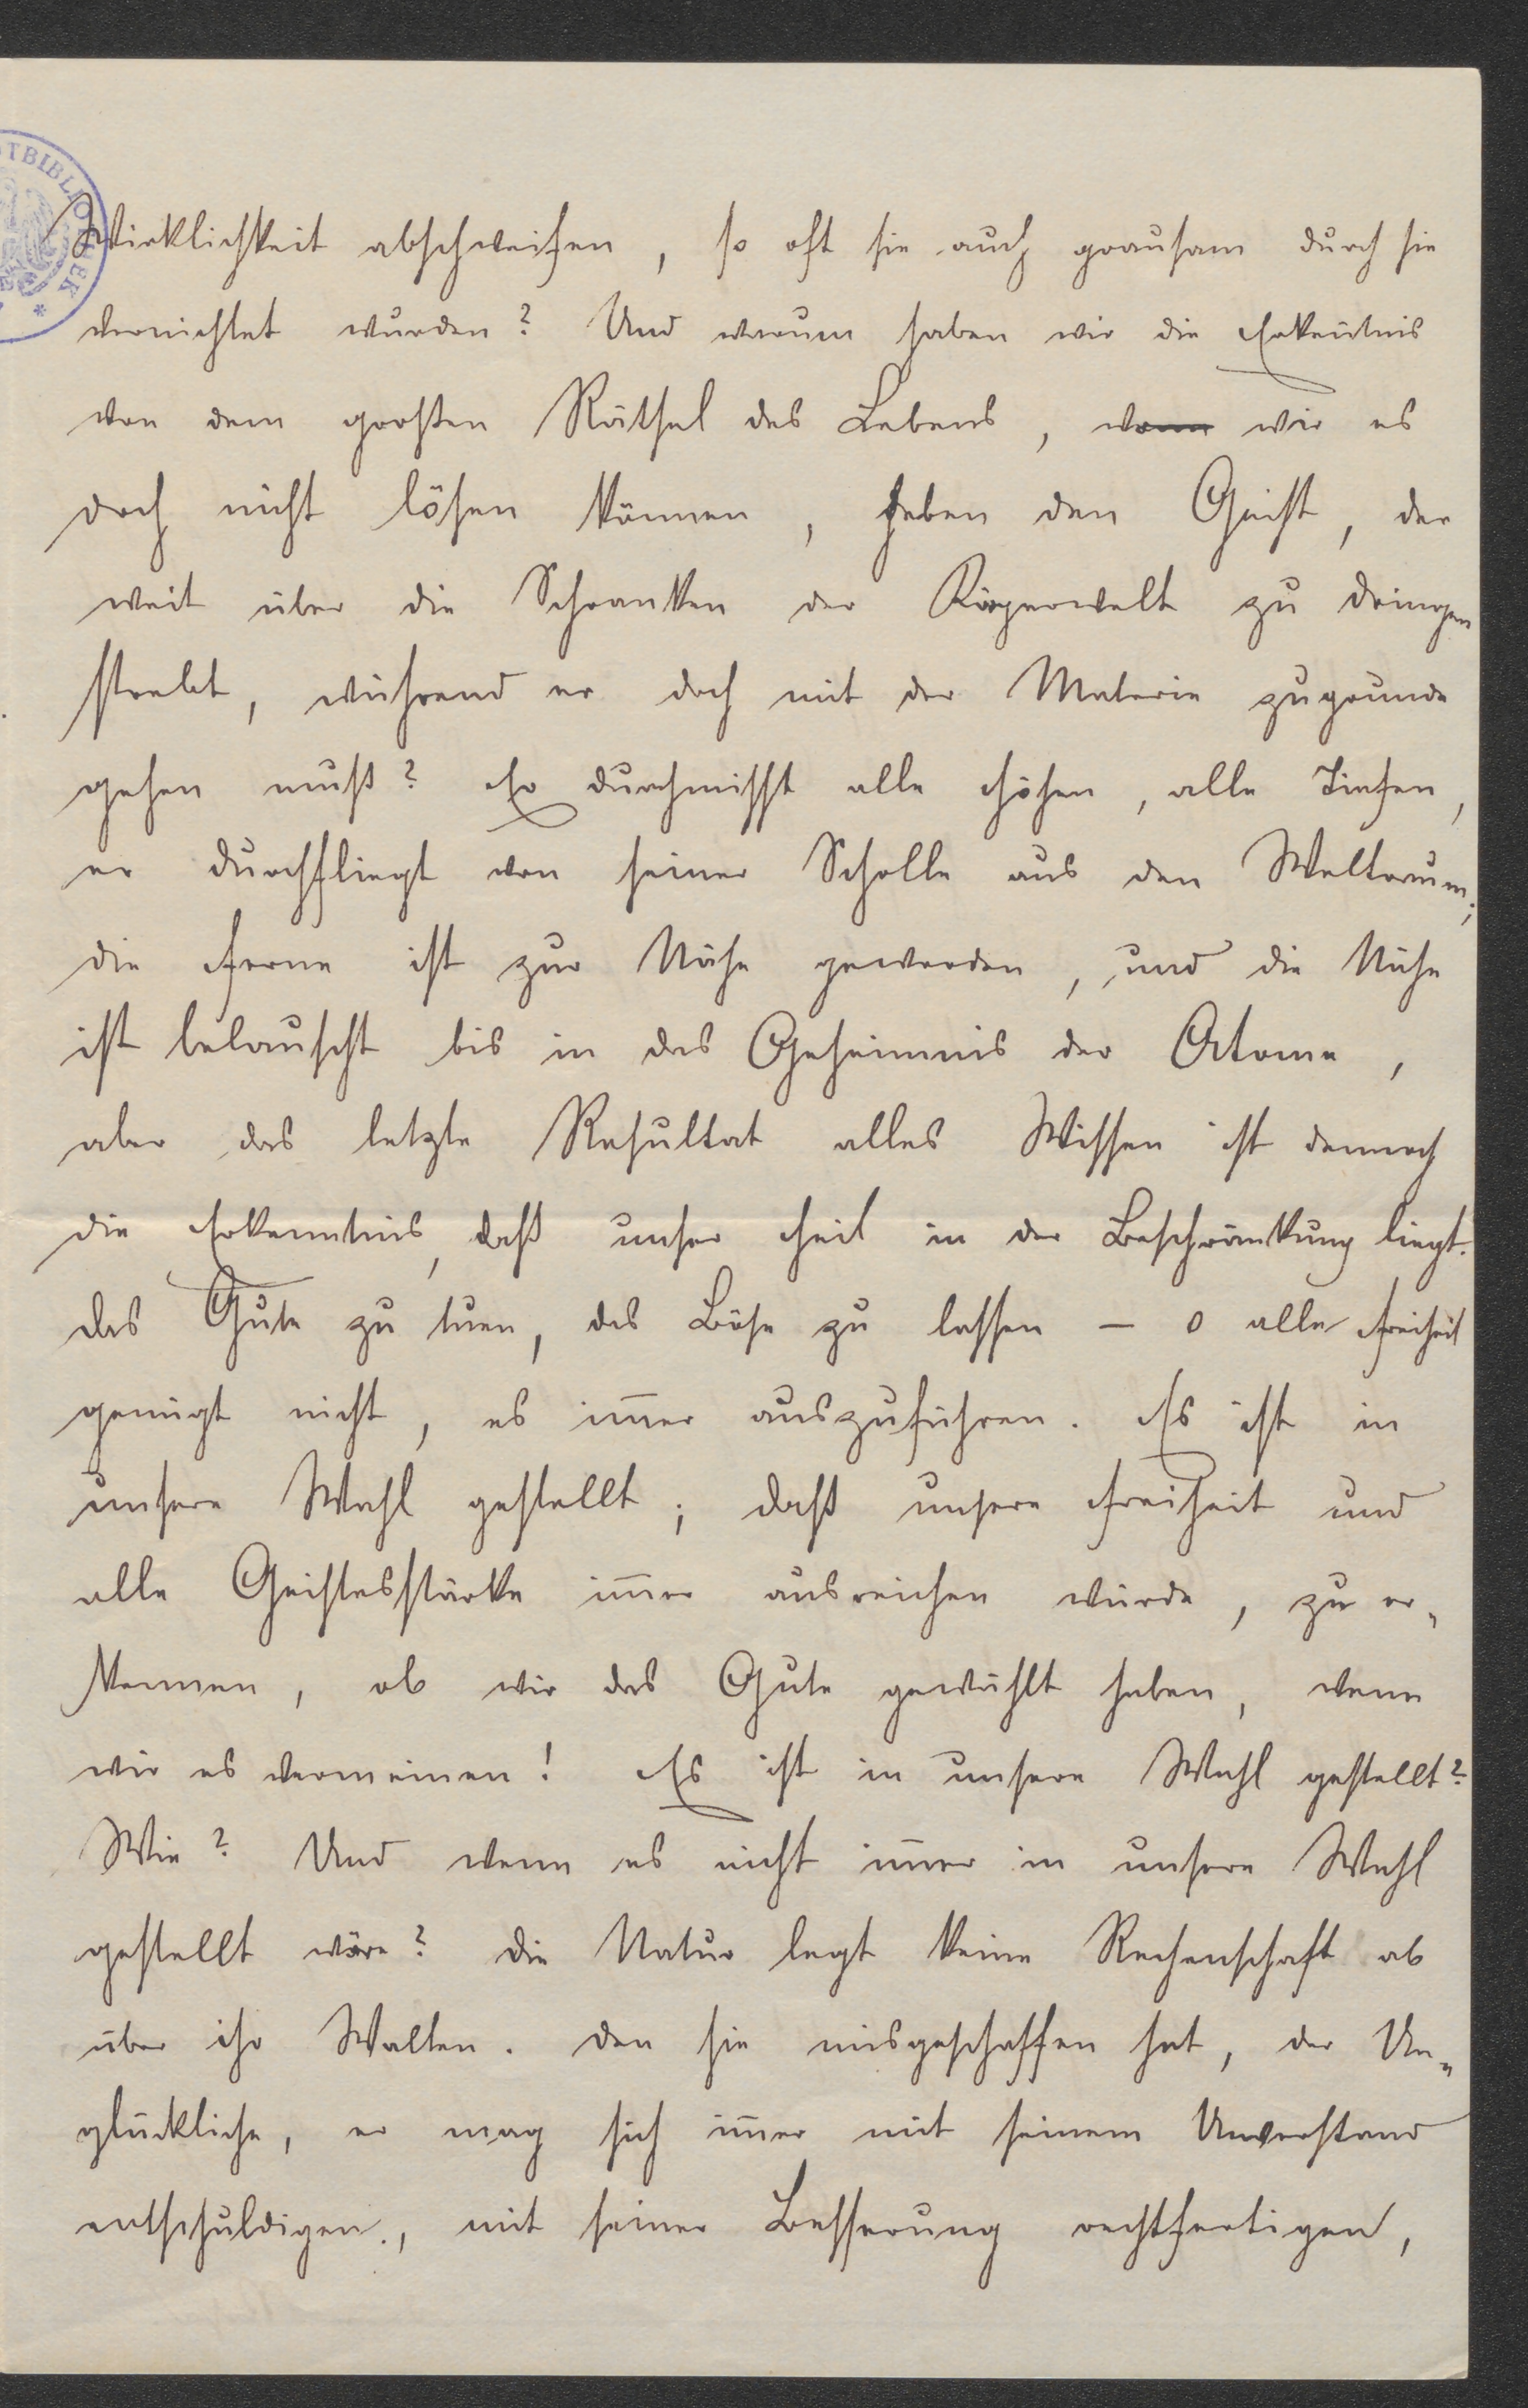 TBIBLIOTHEK *
Wirklichkeit abschweifen, so oft sie auch grausam durch sie
vernichtet wurden? Und warum haben wir die Erkeñtnis
von dem großen Räthsel des Lebens, wenn wir es
doch nicht lösen können, haben den Geist, der
weit über die Schranken der Körperwelt zu dringen
strebt, während er doch mit der Materie zugrunde
gehen muß? Er durchmisst alle Höhen, alle Tiefen,
er durchfliegt von seiner Scholle aus den Weltraum;
die Ferne ist zur Nähe geworden, und die Nähe
ist belauscht bis in das Geheimnis der Atome,
aber das letzte Resultat alles Wissen ist dennoch
die Erkenntnis, daß unser Heil in der Beschränkung liegt.
Das Gute zu tuen, das Böse zu lassen – o alle Freiheit
genügt nicht, es im̄er auszuführen. Es ist in
unsere Wahl gestellt; daß unsere Freiheit und
alle Geistesstärke im̄er ausreichen würde, zu er„
kennen, ob wir das Gute gewählt haben, wenn
wir es vermeinen! Es ist in unsere Wahl gestellt?
Wie? Und wenn es nicht im̄er in unsere Wahl
gestellt wäre? Die Natur legt keine Rechenschaft ab
über ihr Walten. Den sie misgeschaffen hat, der Un„
glückliche, er mag sich im̄er mit seinem Unverstand
entschuldigen, mit seiner Besserung rechtfertigen,